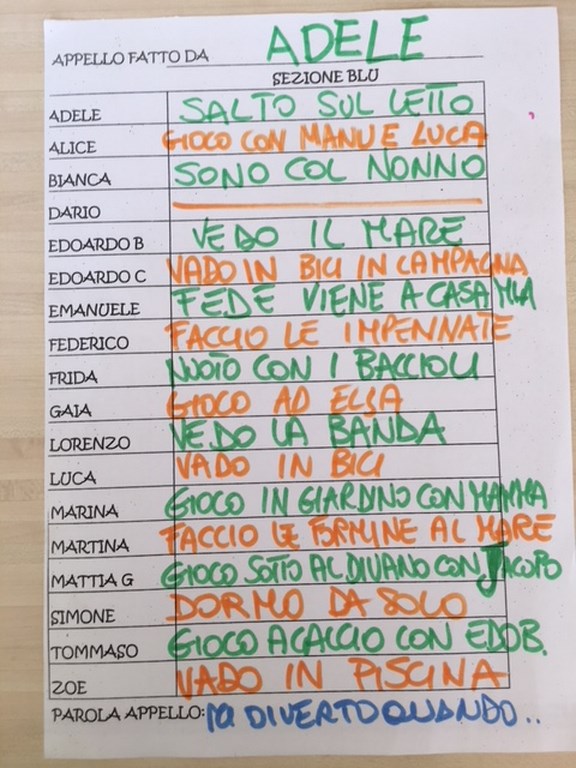 APPELLO FATTO DA ADELE
SEZIONE BLU
ADELE SALTO SUL LETTO
ALICE GIOCO CON MANU E LUCA
BIANCA SONO COL NONNO
DARIO
EDOARDO B VEDO IL MARE
EDOARDO C VADO IN BICI IN CAMPAGNA
EMANUELE FEDE VIENE A CASA MIA
FEDERICO FACCIO LE IMPENNATE
FRIDA NUOTO CON I BACCIOLI
GAIA GIOCO AD ELSA
LORENZO VEDO LA BANDA
LUCA VADO IN BICI
MARINA GIOCO IN GIARDINO CON MAMMA
MARTINA FACCIO LE FORMINE AL MARE
MATTIA G GIOCO SOTTO AL DIVANO CON JACOPO
SIMONE DORMO DA SOLO
TOMMASO GIOCO A CALCIO CON EDO B.
ZOE VADO IN PISCINA
PAROLA APPELLO: MI DIVERTO QUANDO..